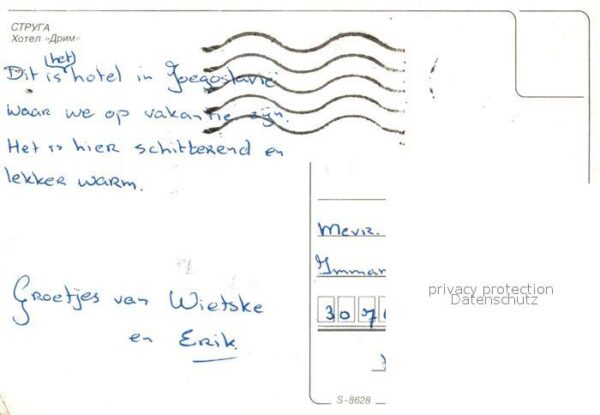 СТРУГА
Хотел «Дрим»
Dit is het hotel in Joegoslavië
waar we op vakantie zijn.
Het is hier schitterend en
lekker warm.
Groetjes van Wietske
en Erik
Mevr.
Imman
307
privacy protection
Datenschutz
S-8628